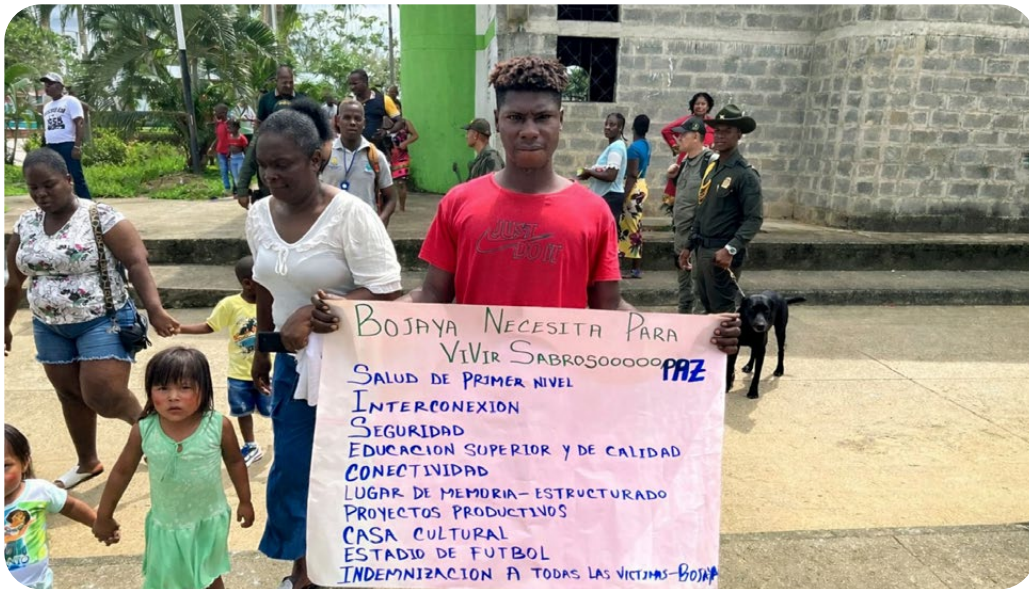 JUST
DO IT
BOJAYA NECESITA PARA
VIVIR SABROSOOOOOO PAZ
SALUD DE PRIMER NIVEL
INTERCONEXION
SEGURIDAD
EDUCACION SUPERIOR Y DE CALIDAD
CONECTIVIDAD
LUGAR DE MEMORIA-ESTRUCTURADO
PROYECTOS PRODUCTIVOS
CASA CULTURAL
ESTADIO DE FUTBOL
INDEMNIZACION A TODAS LAS VICTIMAS-BOJAYA